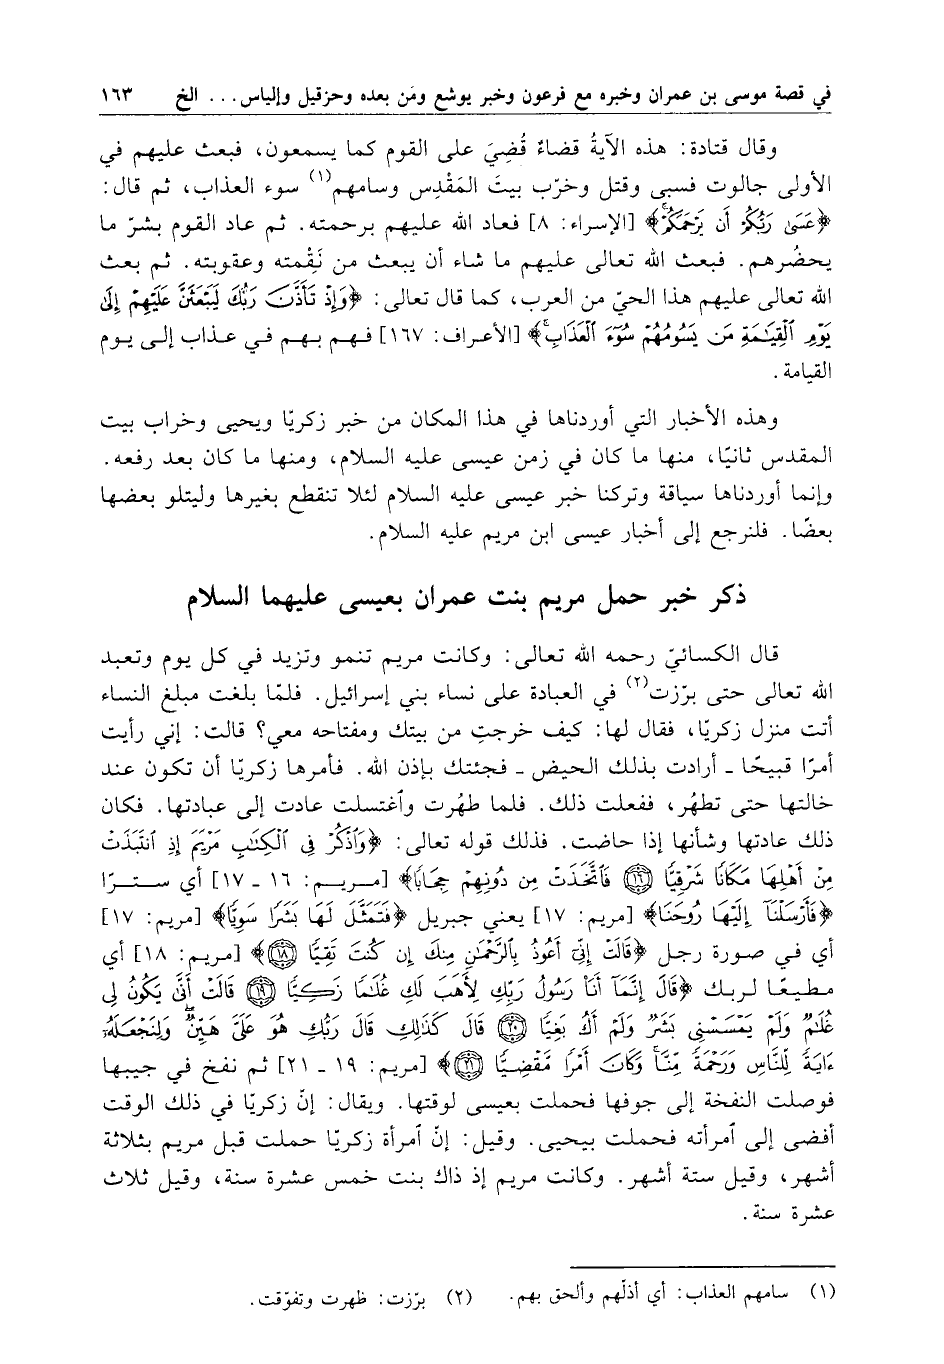 في قصة موسى بن عمران وخبره مع فرعون وخبر يوشع ومَن بعده وحزقيل وإلياس... الخ ١٦٣
وقال قتادة: هذه الآيةُ قضاءٌ قُضِيَ على القوم كما يسمعون، فبعث عليهم في
الأولى جالوت فسبى وقتل وخرّب بيتَ المَقْدِس وسامهم(١) سوء العذاب، ثم قال:
﴿عَسَىٰ رَبُّكُمْ أَن يَرْحَمَكُمْ﴾ [الإسراء: ٨] فعاد الله عليهم برحمته. ثم عاد القوم بشرّ ما
يحضُرهم. فبعث الله تعالى عليهم ما شاء أن يبعث من نَقِْمته وعقوبته. ثم بعث
الله تعالى عليهم هذا الحيّ من العرب، كما قال تعالى: ﴿وَإِذْ تَأَذَّنَ رَبُّكَ لَيَبْعَثَنَّ عَلَيْهِمْ إِلَىٰ
يَوْمِ ٱلْقِيَـٰمَةِ مَن يَسُومُهُمْ سُوٓءَ ٱلْعَذَابِ﴾ [الأعراف: ١٦٧] فهم بهم في عذاب إلى يوم
القيامة.
وهذه الأخبار التي أوردناها في هذا المكان من خبر زكريّا ويحيى وخراب بيت
المقدس ثانيًا، منها ما كان في زمن عيسى عليه السلام، ومنها ما كان بعد رفعه.
وإنما أوردناها سياقة وتركنا خبر عيسى عليه السلام لئلا تنقطع بغيرها وليتلو بعضها
بعضًا. فلنرجع إلى أخبار عيسى ابن مريم عليه السلام.
ذكر خبر حمل مريم بنت عمران بعيسى عليهما السلام
قال الكسائيّ رحمه الله تعالى: وكانت مريم تنمو وتزيد في كل يوم وتعبد
الله تعالى حتى برّزت(٢) في العبادة على نساء بني إسرائيل. فلمّا بلغت مبلغ النساء
أتت منزل زكريّا، فقال لها: كيف خرجتِ من بيتك ومفتاحه معي؟ قالت: إني رأيت
أمرًا قبيحًا ـ أرادت بذلك الحيض ـ فجئتك بإذن الله. فأمرها زكريّا أن تكون عند
خالتها حتى تطهُر، ففعلت ذلك. فلما طهُرت وٱغتسلت عادت إلى عبادتها. فكان
ذلك عادتها وشأنها إذا حاضت. فذلك قوله تعالى: ﴿وَٱذْكُرْ فِى ٱلْكِتَـٰبِ مَرْيَمَ إِذِ ٱنتَبَذَتْ
مِنْ أَهْلِهَا مَكَانًا شَرْقِيًّا ﴿١٦﴾ فَٱتَّخَذَتْ مِن دُونِهِمْ حِجَابًا﴾ [مريم: ١٦ ـ ١٧] أي سترًا
﴿فَأَرْسَلْنَآ إِلَيْهَا رُوحَنَا﴾ [مريم: ١٧] يعني جبريل ﴿فَتَمَثَّلَ لَهَا بَشَرًا سَوِيًّا﴾ [مريم: ١٧]
أي في صورة رجل ﴿قَالَتْ إِنِّىٓ أَعُوذُ بِٱلرَّحْمَـٰنِ مِنكَ إِن كُنتَ تَقِيًّا ﴿١٨﴾﴾ [مريم: ١٨] أي
مطيعًا لربك ﴿قَالَ إِنَّمَآ أَنَا۠ رَسُولُ رَبِّكِ لِأَهَبَ لَكِ غُلَـٰمًا زَكِيًّا ﴿١٩﴾ قَالَتْ أَنَّىٰ يَكُونُ لِى
غُلَـٰمٌ وَلَمْ يَمْسَسْنِى بَشَرٌ وَلَمْ أَكُ بَغِيًّا ﴿٢٠﴾ قَالَ كَذَٰلِكِ قَالَ رَبُّكِ هُوَ عَلَىَّ هَيِّنٌ ۖ وَلِنَجْعَلَهُۥٓ
ءَايَةً لِّلنَّاسِ وَرَحْمَةً مِّنَّا ۚ وَكَانَ أَمْرًا مَّقْضِيًّا ﴿٢١﴾﴾ [مريم: ١٩ ـ ٢١] ثم نفخ في جيبها
فوصلت النفخة إلى جوفها فحملت بعيسى لوقتها. ويقال: إنّ زكريّا في ذلك الوقت
أفضى إلى ٱمرأته فحملت بيحيى. وقيل: إنّ ٱمرأة زكريّا حملت قبل مريم بثلاثة
أشهر، وقيل ستة أشهر. وكانت مريم إذ ذاك بنت خمس عشرة سنة، وقيل ثلاث
عشرة سنة.
(١) سامهم العذاب: أي أذلّهم وألحق بهم. (٢) برّزت: ظهرت وتفوّقت.